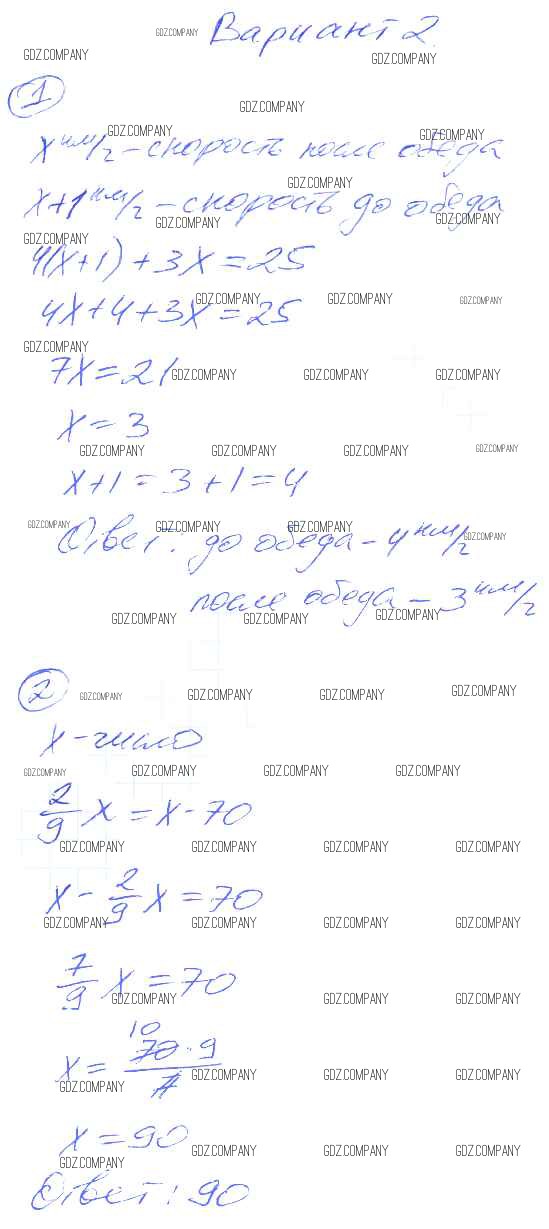 Вариант 2.
1
x км/ч – скорость после обеда
x+1 км/ч – скорость до обеда
4(x+1)+3x=25
4x+4+3x=25
7x=21
x=3
x+1=3+1=4
Ответ: до обеда – 4 км/ч
после обеда – 3 км/ч
2
x – число
2/9 x = x - 70
x - 2/9 x = 70
7/9 x = 70
10
x = 70·9/7
x = 90
Ответ: 90
GDZ.COMPANY